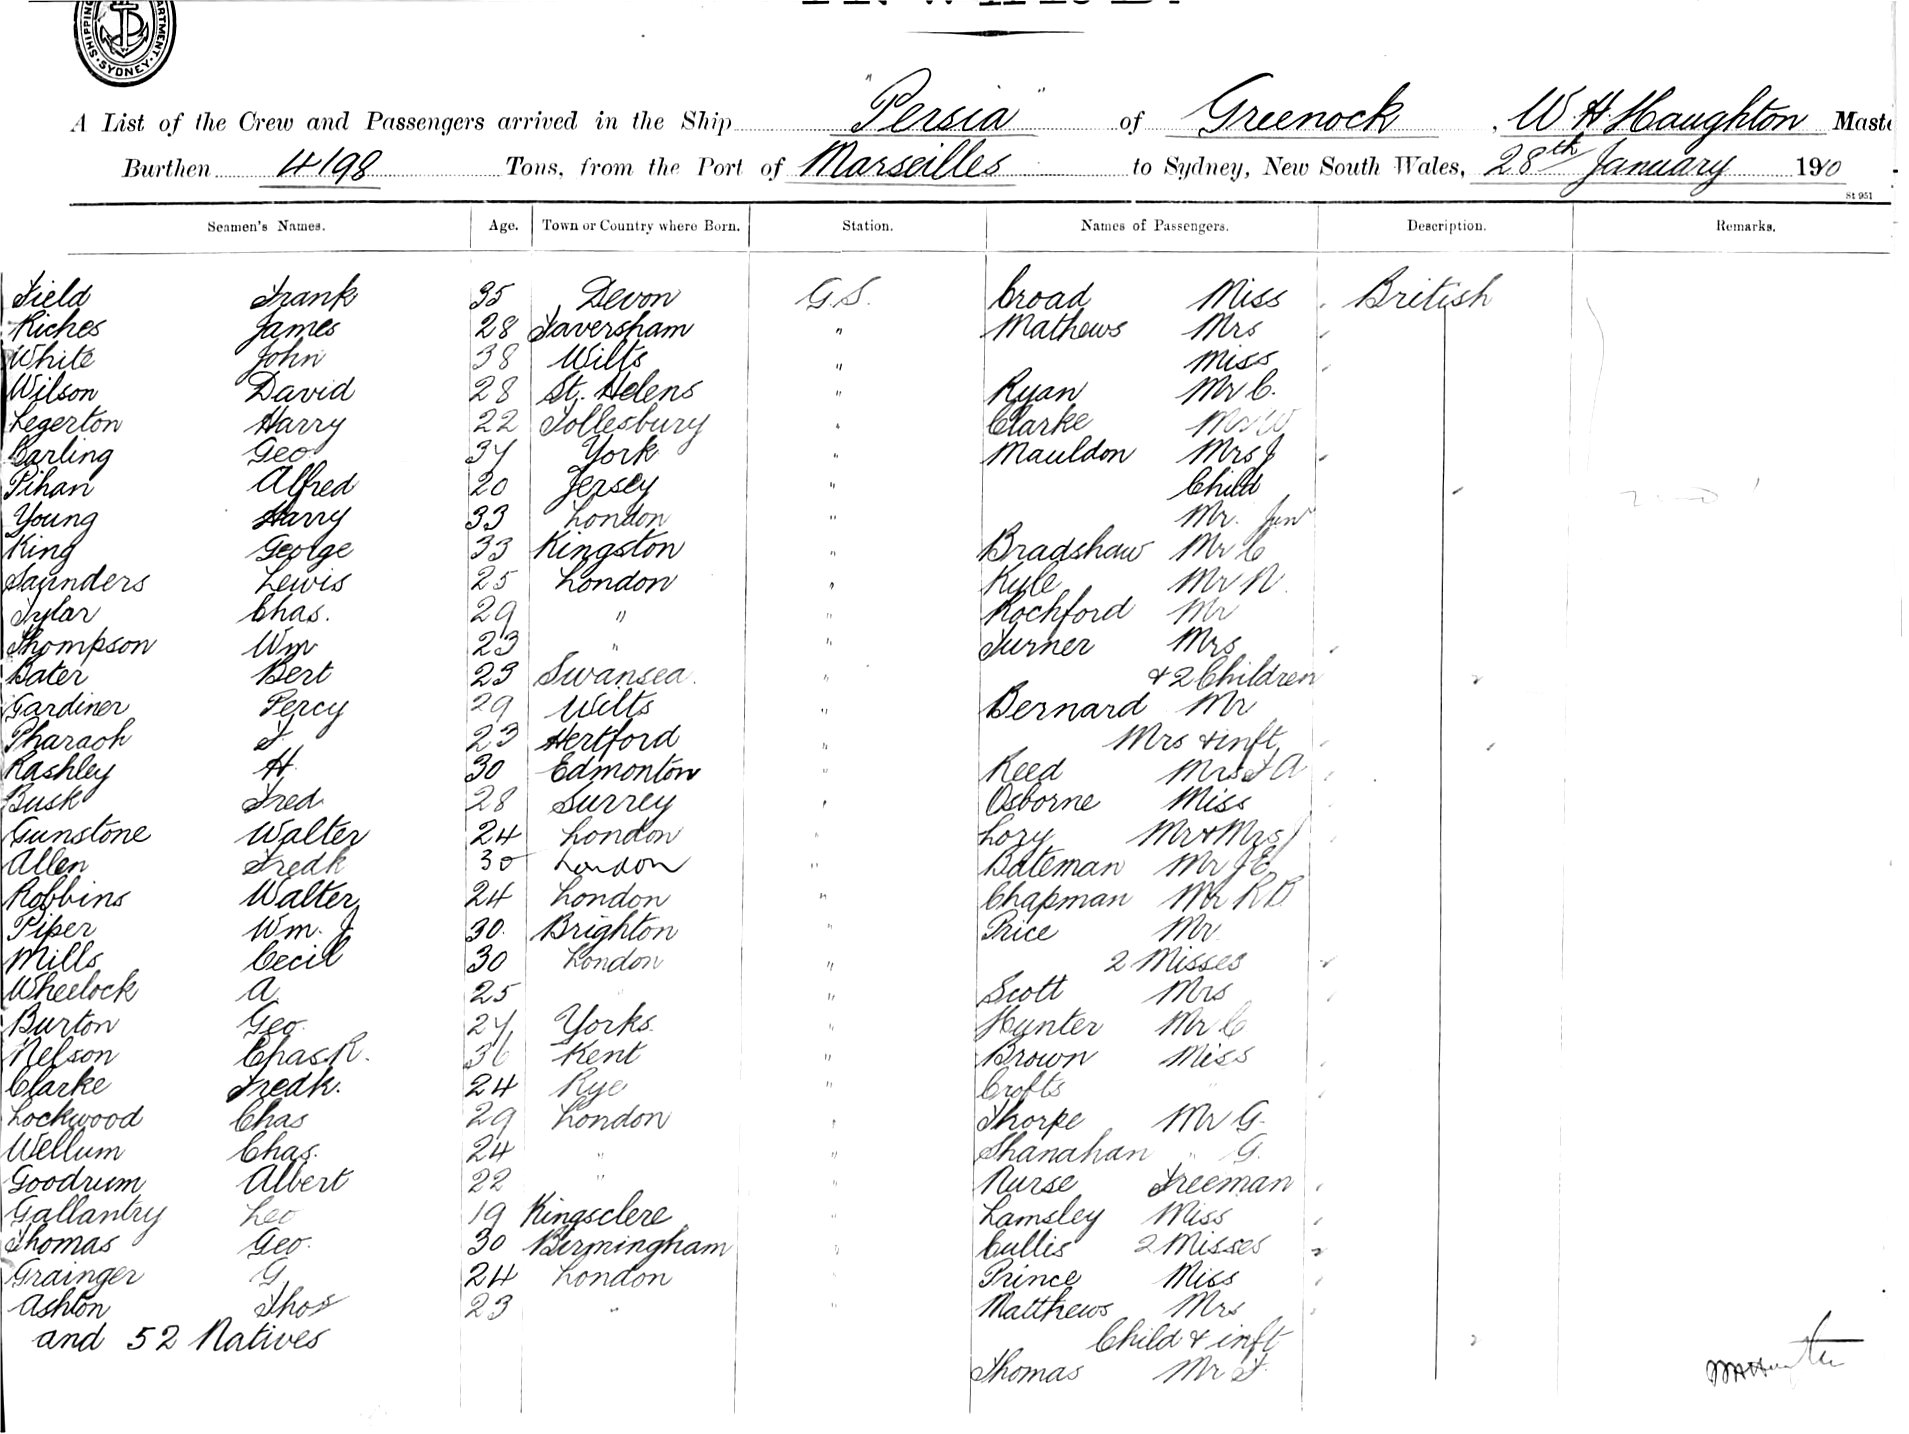 SHIPPING DEPARTMENT SYDNEY
A List of the Crew and Passengers arrived in the Ship "Persia" of Greenock, W H Haughton Maste
Burthen 4198 Tons, from the Port of Marseilles to Sydney, New South Wales, 28th January 1910
St 951
Seamen's Names. Age. Town or Country where Born. Station. Names of Passengers. Description. Remarks.
Field Frank 35 Devon G.S. Croad Miss British
Riches James 28 Faversham " Mathews Mrs
White John 38 Wilts " Miss
Wilson David 28 St. Helens " Ryan Mr C.
Legerton Harry 22 Tollesbury " Clarke Mr W
Carling Geo 34 York " Mauldon Mrs J
Pihan Alfred 20 Jersey " Child
Young Harry 33 London " Mr. Junr
King George 33 Kingston " Bradshaw Mr C
Saunders Lewis 25 London " Kyle Mr N.
Tylar Chas. 29 " " Rochford Mr
Thompson Wm 23 " " Turner Mrs
Bater Bert 23 Swansea. " & 2 Children
Gardiner Percy 29 Wilts " Bernard Mr
Pharaoh F. 23 Hertford " Mrs & inft
Rashley H. 30 Edmonton " Reed Mrs F A
Busk Fred 28 Surrey " Osborne Miss
Gunstone Walter 24 London " Lozy Mr & Mrs
Allen Fredk 30 London " Bateman Mr J E
Robbins Walter 24 London " Chapman Mr R B
Piper Wm. J 30. Brighton " Price Mr
Mills Cecil 30 London " 2 Misses
Wheelock A 25 " " Scott Mrs
Burton Geo. 24 Yorks. " Hunter Mr C
Nelson Chas. R. 36 Kent " Brown Miss
Clarke Fredk. 24 Rye " Crofts "
Lockwood Chas 29 London " Thorpe Mr G.
Wellum Chas. 24 " " Shanahan " G.
Goodrum Albert 22 " " Nurse Freeman
Gallantry Leo 19 Kingsclere " Lamsley Miss
Thomas Geo. 30 Birmingham " Cullis 2 Misses
Grainger G 24 London " Prince Miss
Ashton Thos 23 " Matthews Mrs
and 52 Natives Child & inft
Thomas Mr F.